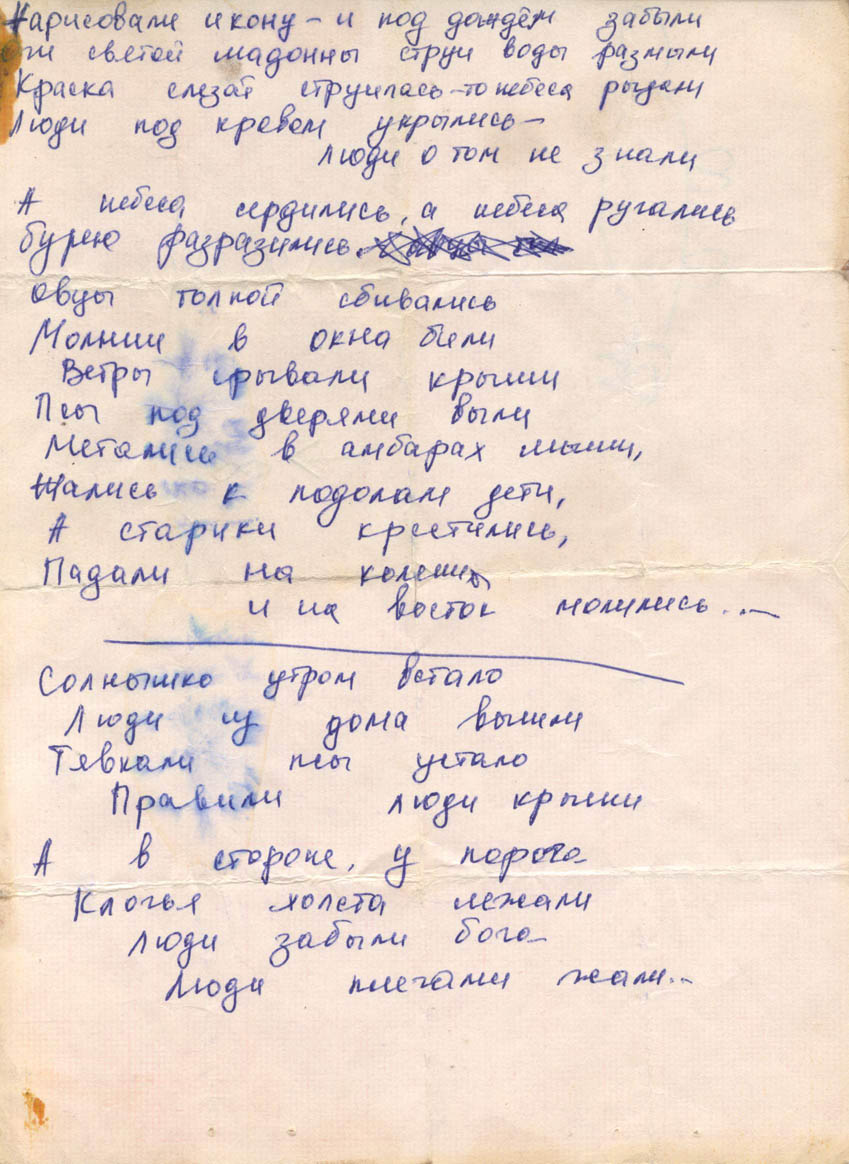 Нарисовали икону – и под дождём забыли
очи светой мадонны струи воды размыли
Краска слезой струилась – то небеса рыдали
Люди под кровом укрылись –
Люди о том не знали
А небеса сердились, а небеса ругались
бурею разразились.
Овцы толпой сбивались
Молнии в окна били
Ветры срывали крыши
Псы под дверями выли
Метались в амбарах мыши,
Жались к подолам дети,
А старики крестились,
Падали на колени
и на восток молились...
Солнышко утром встало
Люди из дома вышли
Тявкали псы устало
Правили люди крыши
А в стороне, у порога
Клочья холста лежали
Люди забыли бога
Люди плечами жали...